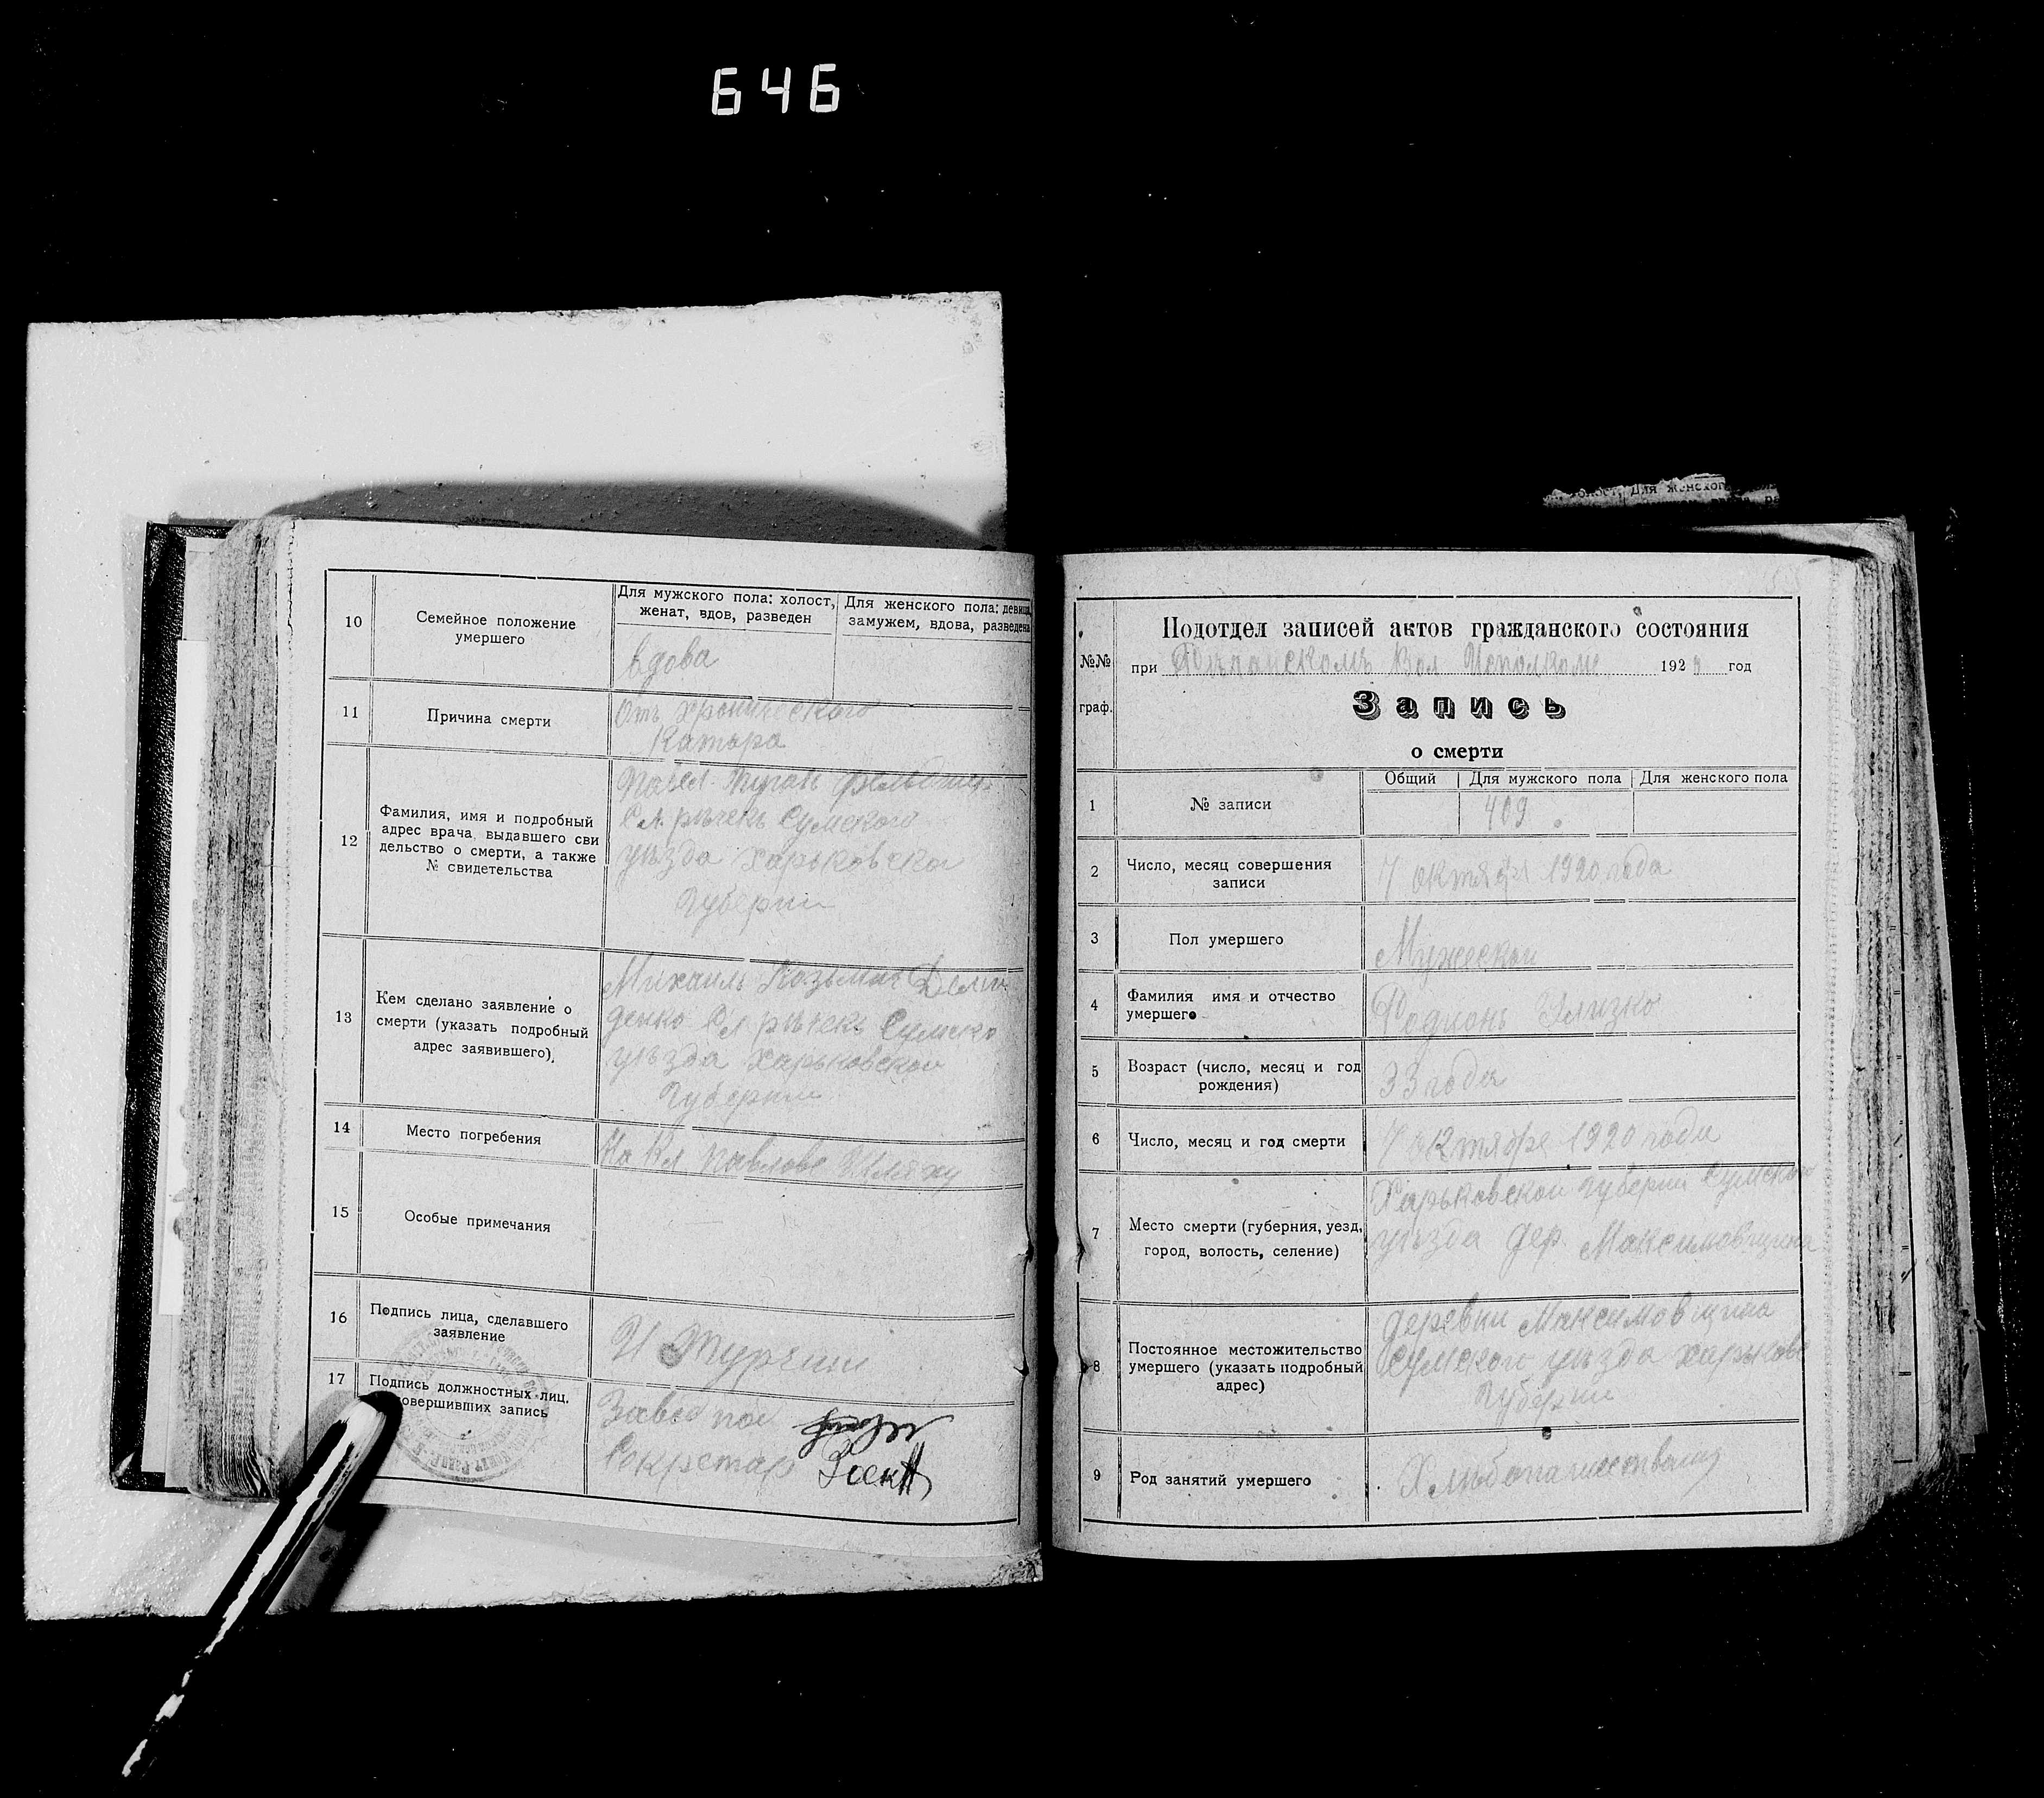 646
10
Семейное положение
умершего
Для мужского пола: холост,
женат, вдов, разведен
Для женского пола: девица,
замужем, вдова, разведена
вдова
11
Причина смерти
Отъ хронического
Катара
12
Фамилия, имя и подробный
адрес врача, выдавшего сви
дельство о смерти, а также
№ свидетельства
фельдшер
Сл. рѣчекъ Сумского
уѣзда Харьковско
губернии
13
Кем сделано заявление о
смерти (указать подробный
адрес заявившего).
Михаилъ Козьмич Деми
денко Сл рѣчекъ Сумско
уѣзда Харьковской
Губернии
14
Место погребения
На Кл
15
Особые примечания
16
Подпись лица, сделавшего
заявление
17
Подпись должностных лиц,
совершивших запись
Завед
Сокретар
№№
граф.
Подотдел записей актов гражданского состояния
при Вол Исполкоме 192 год
Запись
о смерти
Общий
Для мужского пола
Для женского пола
1
№ записи
409
2
Число, месяц совершения
записи
7 октября 1920 года
3
Пол умершего
Мужеской
4
Фамилия имя и отчество
умершего
Родионъ
5
Возраст (число, месяц и год
рождения)
33 года
6
Число, месяц и год смерти
7 октября 1920 года
7
Место смерти (губерния, уезд,
город, волость, селение)
Харьковской губернии Сумского
уѣзда дер. Максимовщина
8
Постоянное местожительство
умершего (указать подробный
адрес)
деревни Максимовщина
Сумского уѣзда харьков
Губернии
9
Род занятий умершего
Для женского